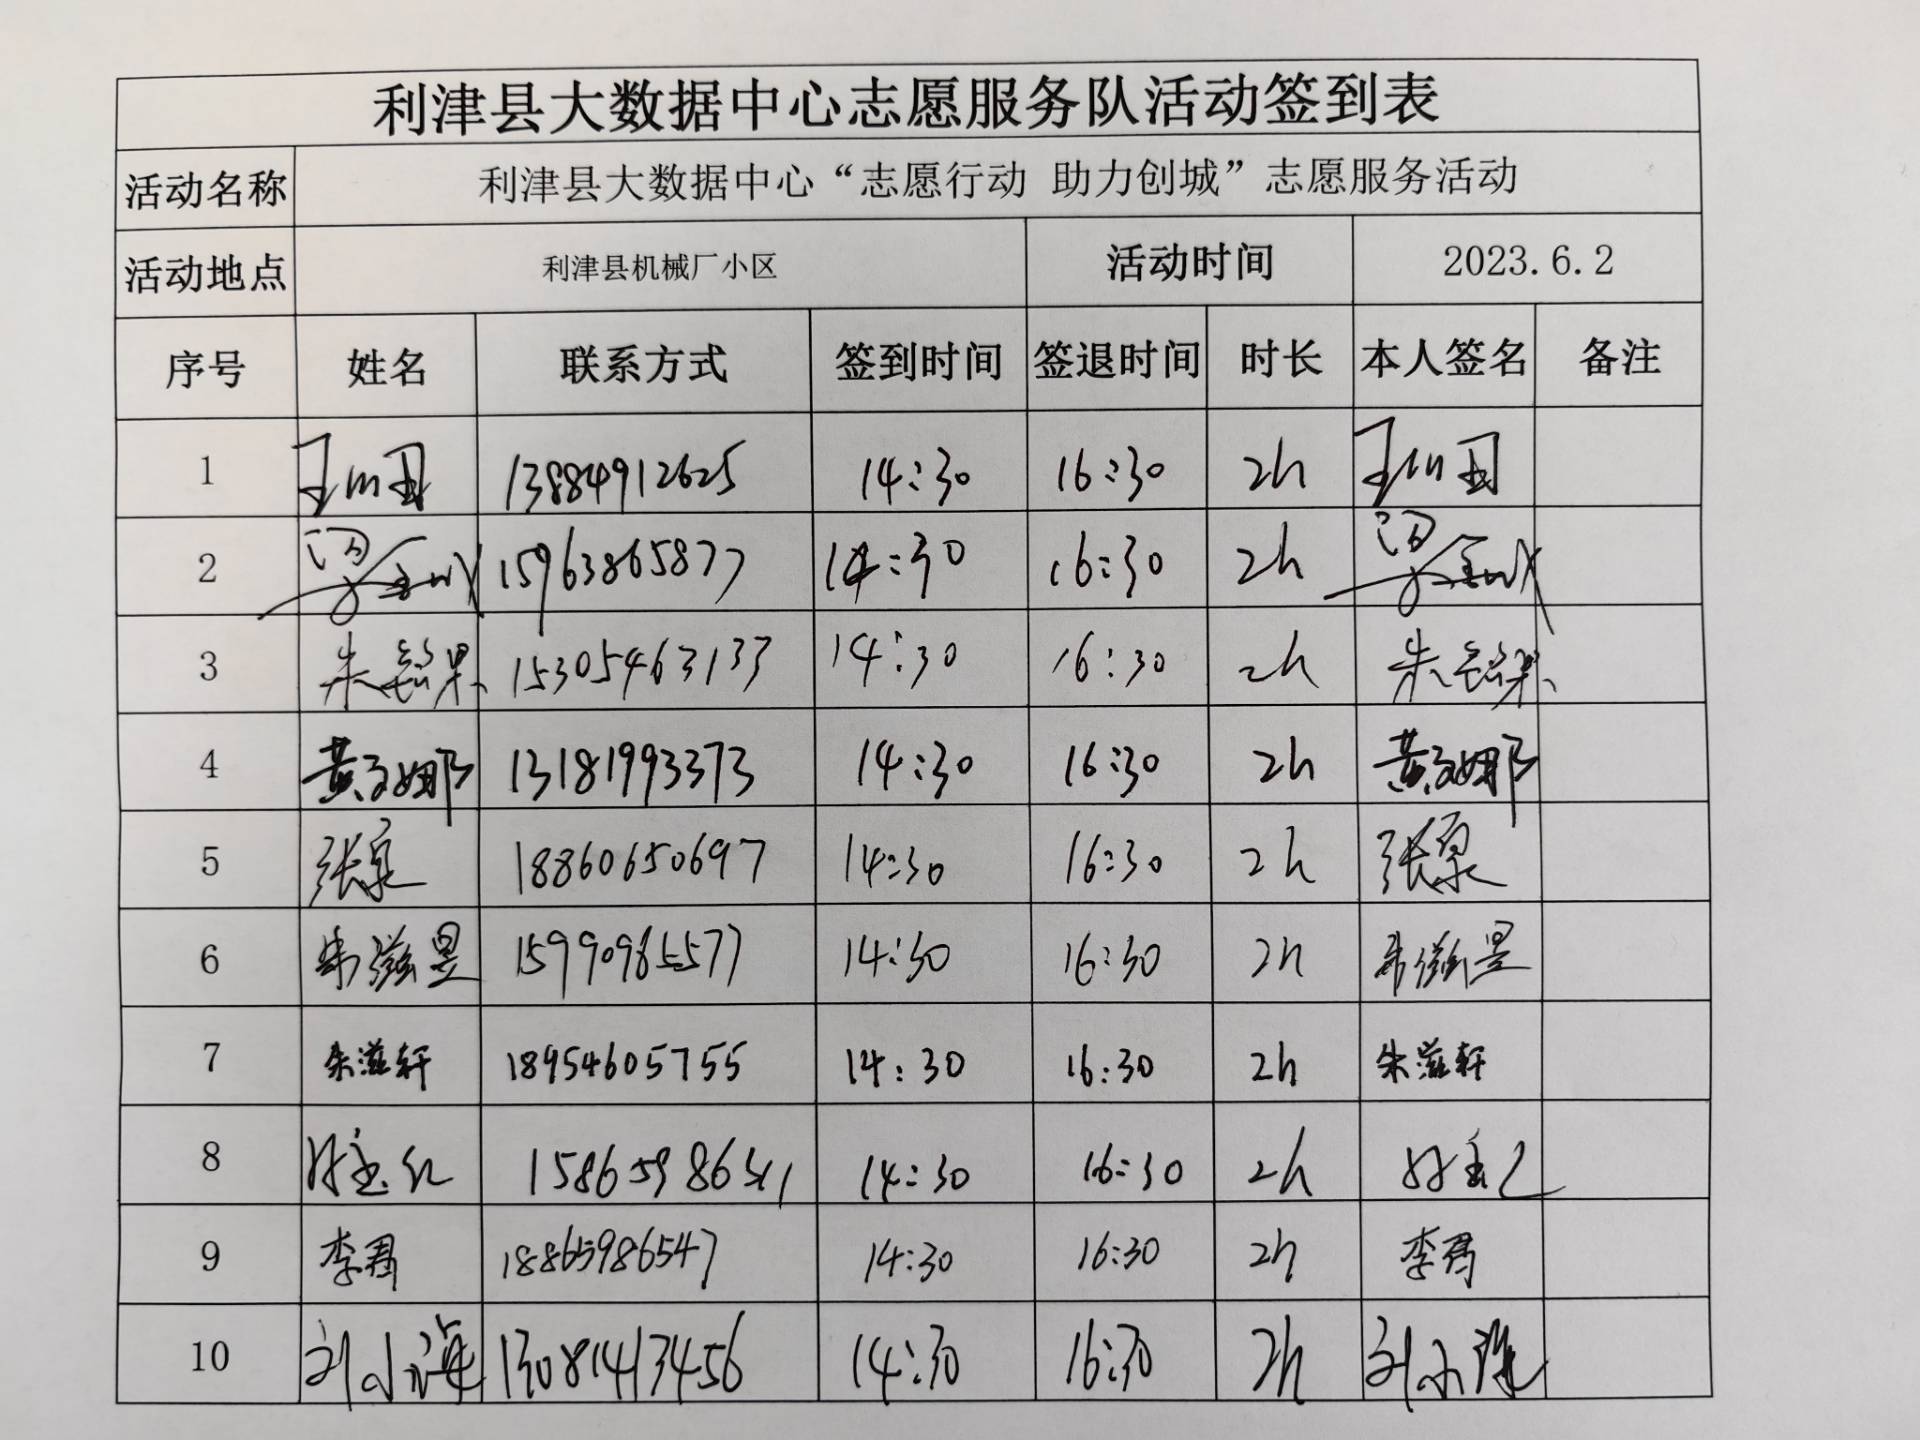 利津县大数据中心志愿服务队活动签到表
活动名称 利津县大数据中心“志愿行动 助力创城”志愿服务活动
活动地点 利津县机械厂小区 活动时间 2023.6.2
序号 姓名 联系方式 签到时间 签退时间 时长 本人签名 备注
1 13884912625 14:30 16:30 2h
2 15963865877 14:30 16:30 2h
3 15305463133 14:30 16:30 2h
4 13181993373 14:30 16:30 2h
5 张泉 18860650697 14:30 16:30 2h 张泉
6 朱滋昱 14:30 16:30 2h 朱滋昱
7 朱滋轩 18954605755 14:30 16:30 2h 朱滋轩
8 14:30 16:30 2h
9 李君 18865986547 14:30 16:30 2h 李君
10 刘小海 13081413456 14:30 16:30 2h 刘小海